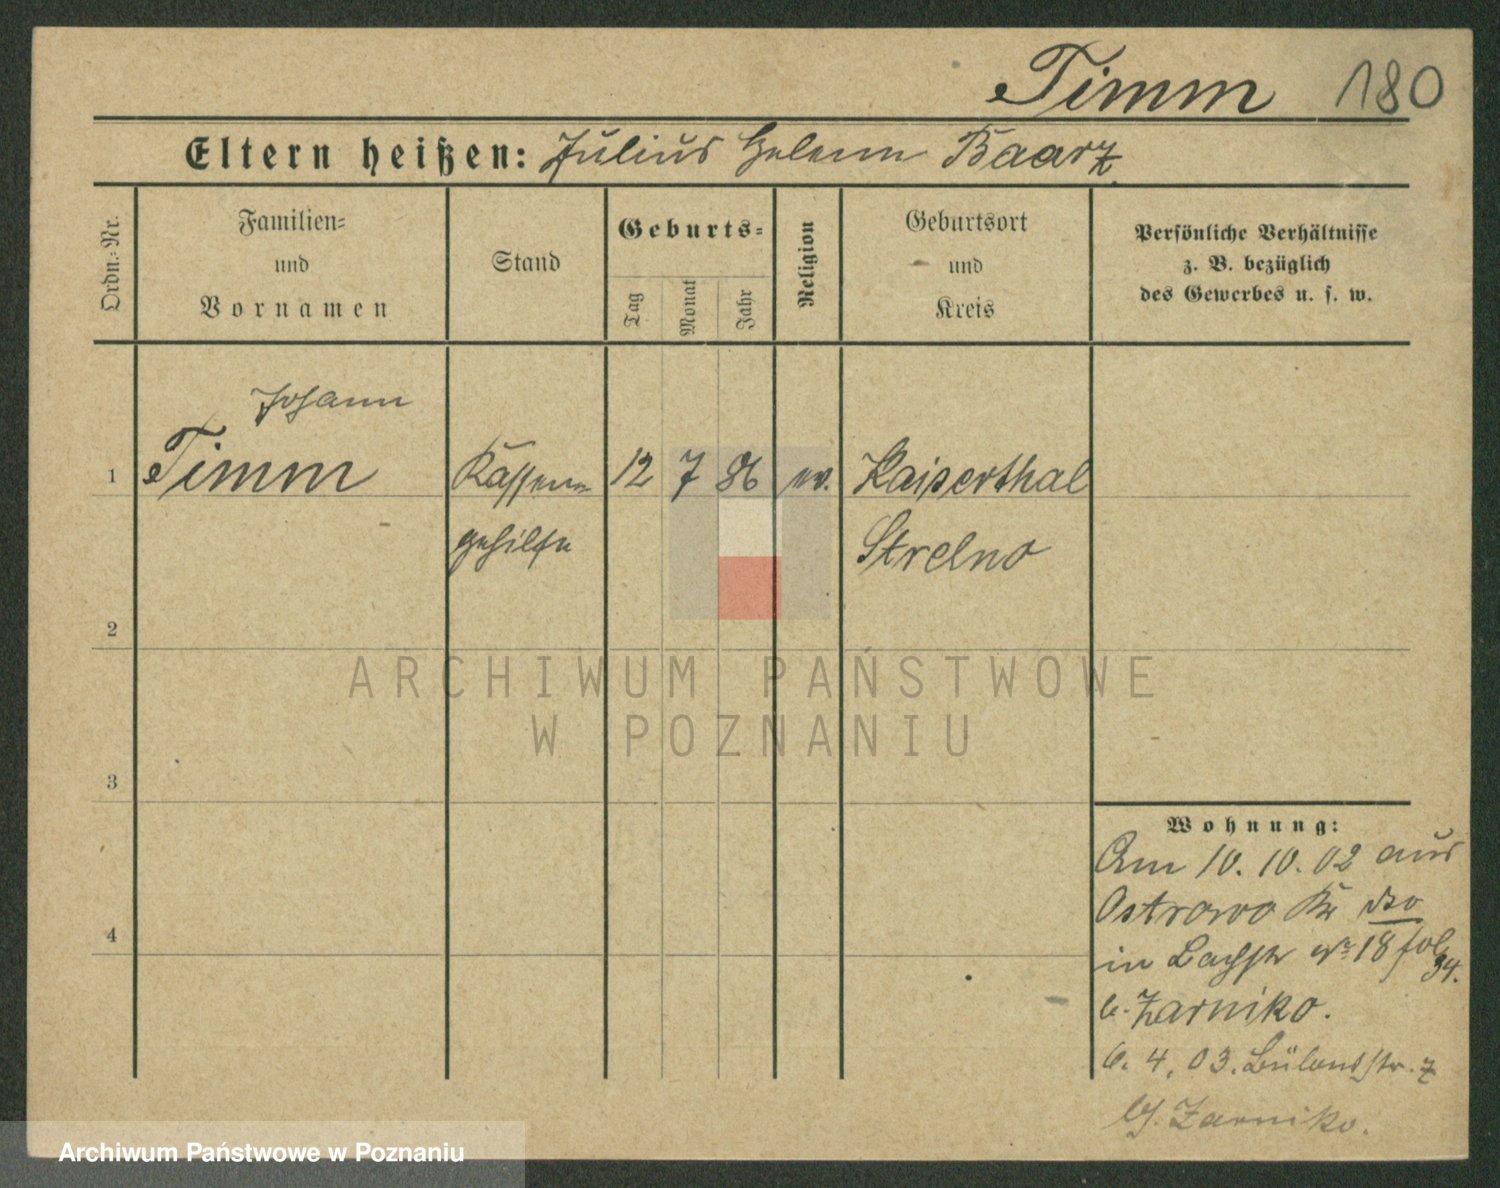 Timm 180
Eltern heißen: Julius Helene Baarz
Ordn.-Nr.
Familien-
und
Vornamen
Stand
Geburts-
Tag
Monat
Jahr
Religion
Geburtsort
und
Kreis
Persönliche Verhältnisse
z. B. bezüglich
des Gewerbes u. s. w.
Johann
1 Timm Kassen- 12 7 86 ev. Kaiserthal
gehilfe Strelno
2
3
4
ARCHIWUM PAŃSTWOWE
W POZNANIU
Wohnung:
Am 10. 10. 02 aus
Ostrowo Kr dto
in No 18 fol
94.
b. Zarniko.
6. 4. 03. Bülowstr. 7
b. Zarniko.
Archiwum Państwowe w Poznaniu